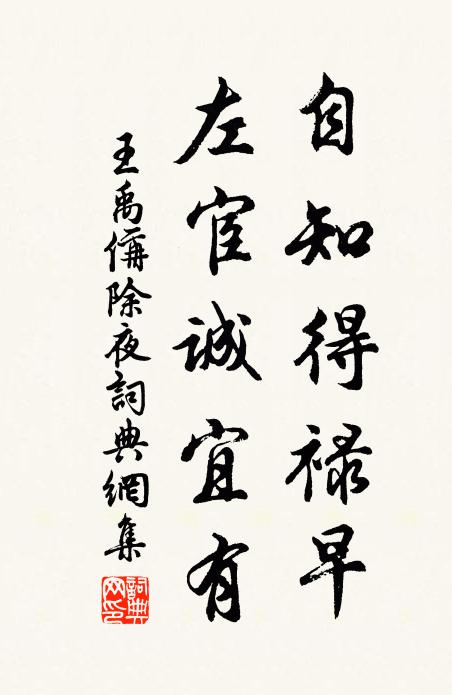 自知得禄早
左宦誠宜有
王禹偁除夜詞典網集
詞典網印